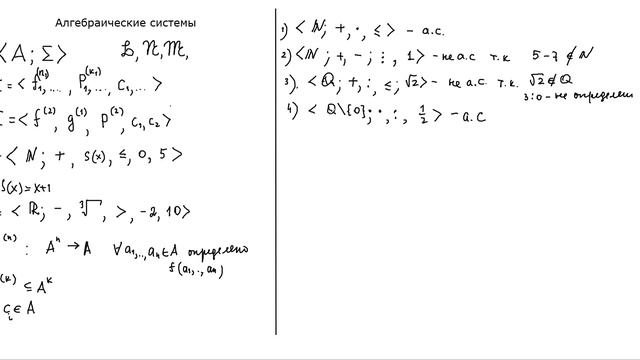 Алгебраические системы
< A; Σ > L, N, M,
= < f₁⁽ⁿ¹⁾, ..., P₁⁽ᵏ¹⁾, ..., c₁, ... >
= < f⁽²⁾, g⁽¹⁾, P⁽²⁾, c₁, c₂ >
< ℕ; +, S(x), ≤, 0, 5 >
S(x) = x+1
= < ℝ; -, ∛, >, -2, 10 >
⁽ⁿ⁾ : Aⁿ → A ∀ a₁,..,aₙ ∈ A определено
f(a₁,.,aₙ)
⁽ᵏ⁾ ⊆ Aᵏ
cᵢ ∈ A
1) < ℕ; +, ·, ≤ > - а.с.
2) < ℕ; +, -, :, 1 > - не а.с т.к 5-7 ∉ ℕ
3). < ℚ; +, :, ≤; √2 > - не а.с. т.к. √2 ∉ ℚ
3:0 - не определено
4) < ℚ\{0}; ·, :, 1/2 > - а.с